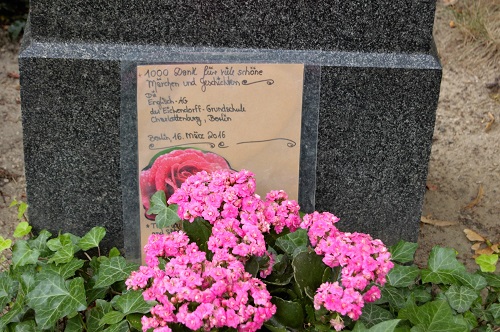 1000 Dank für viele schöne
Märchen und Geschichten
Die
Englisch-AG
der Eichendorff-Grundschule
Charlottenburg, Berlin
Berlin, 16. März 2016